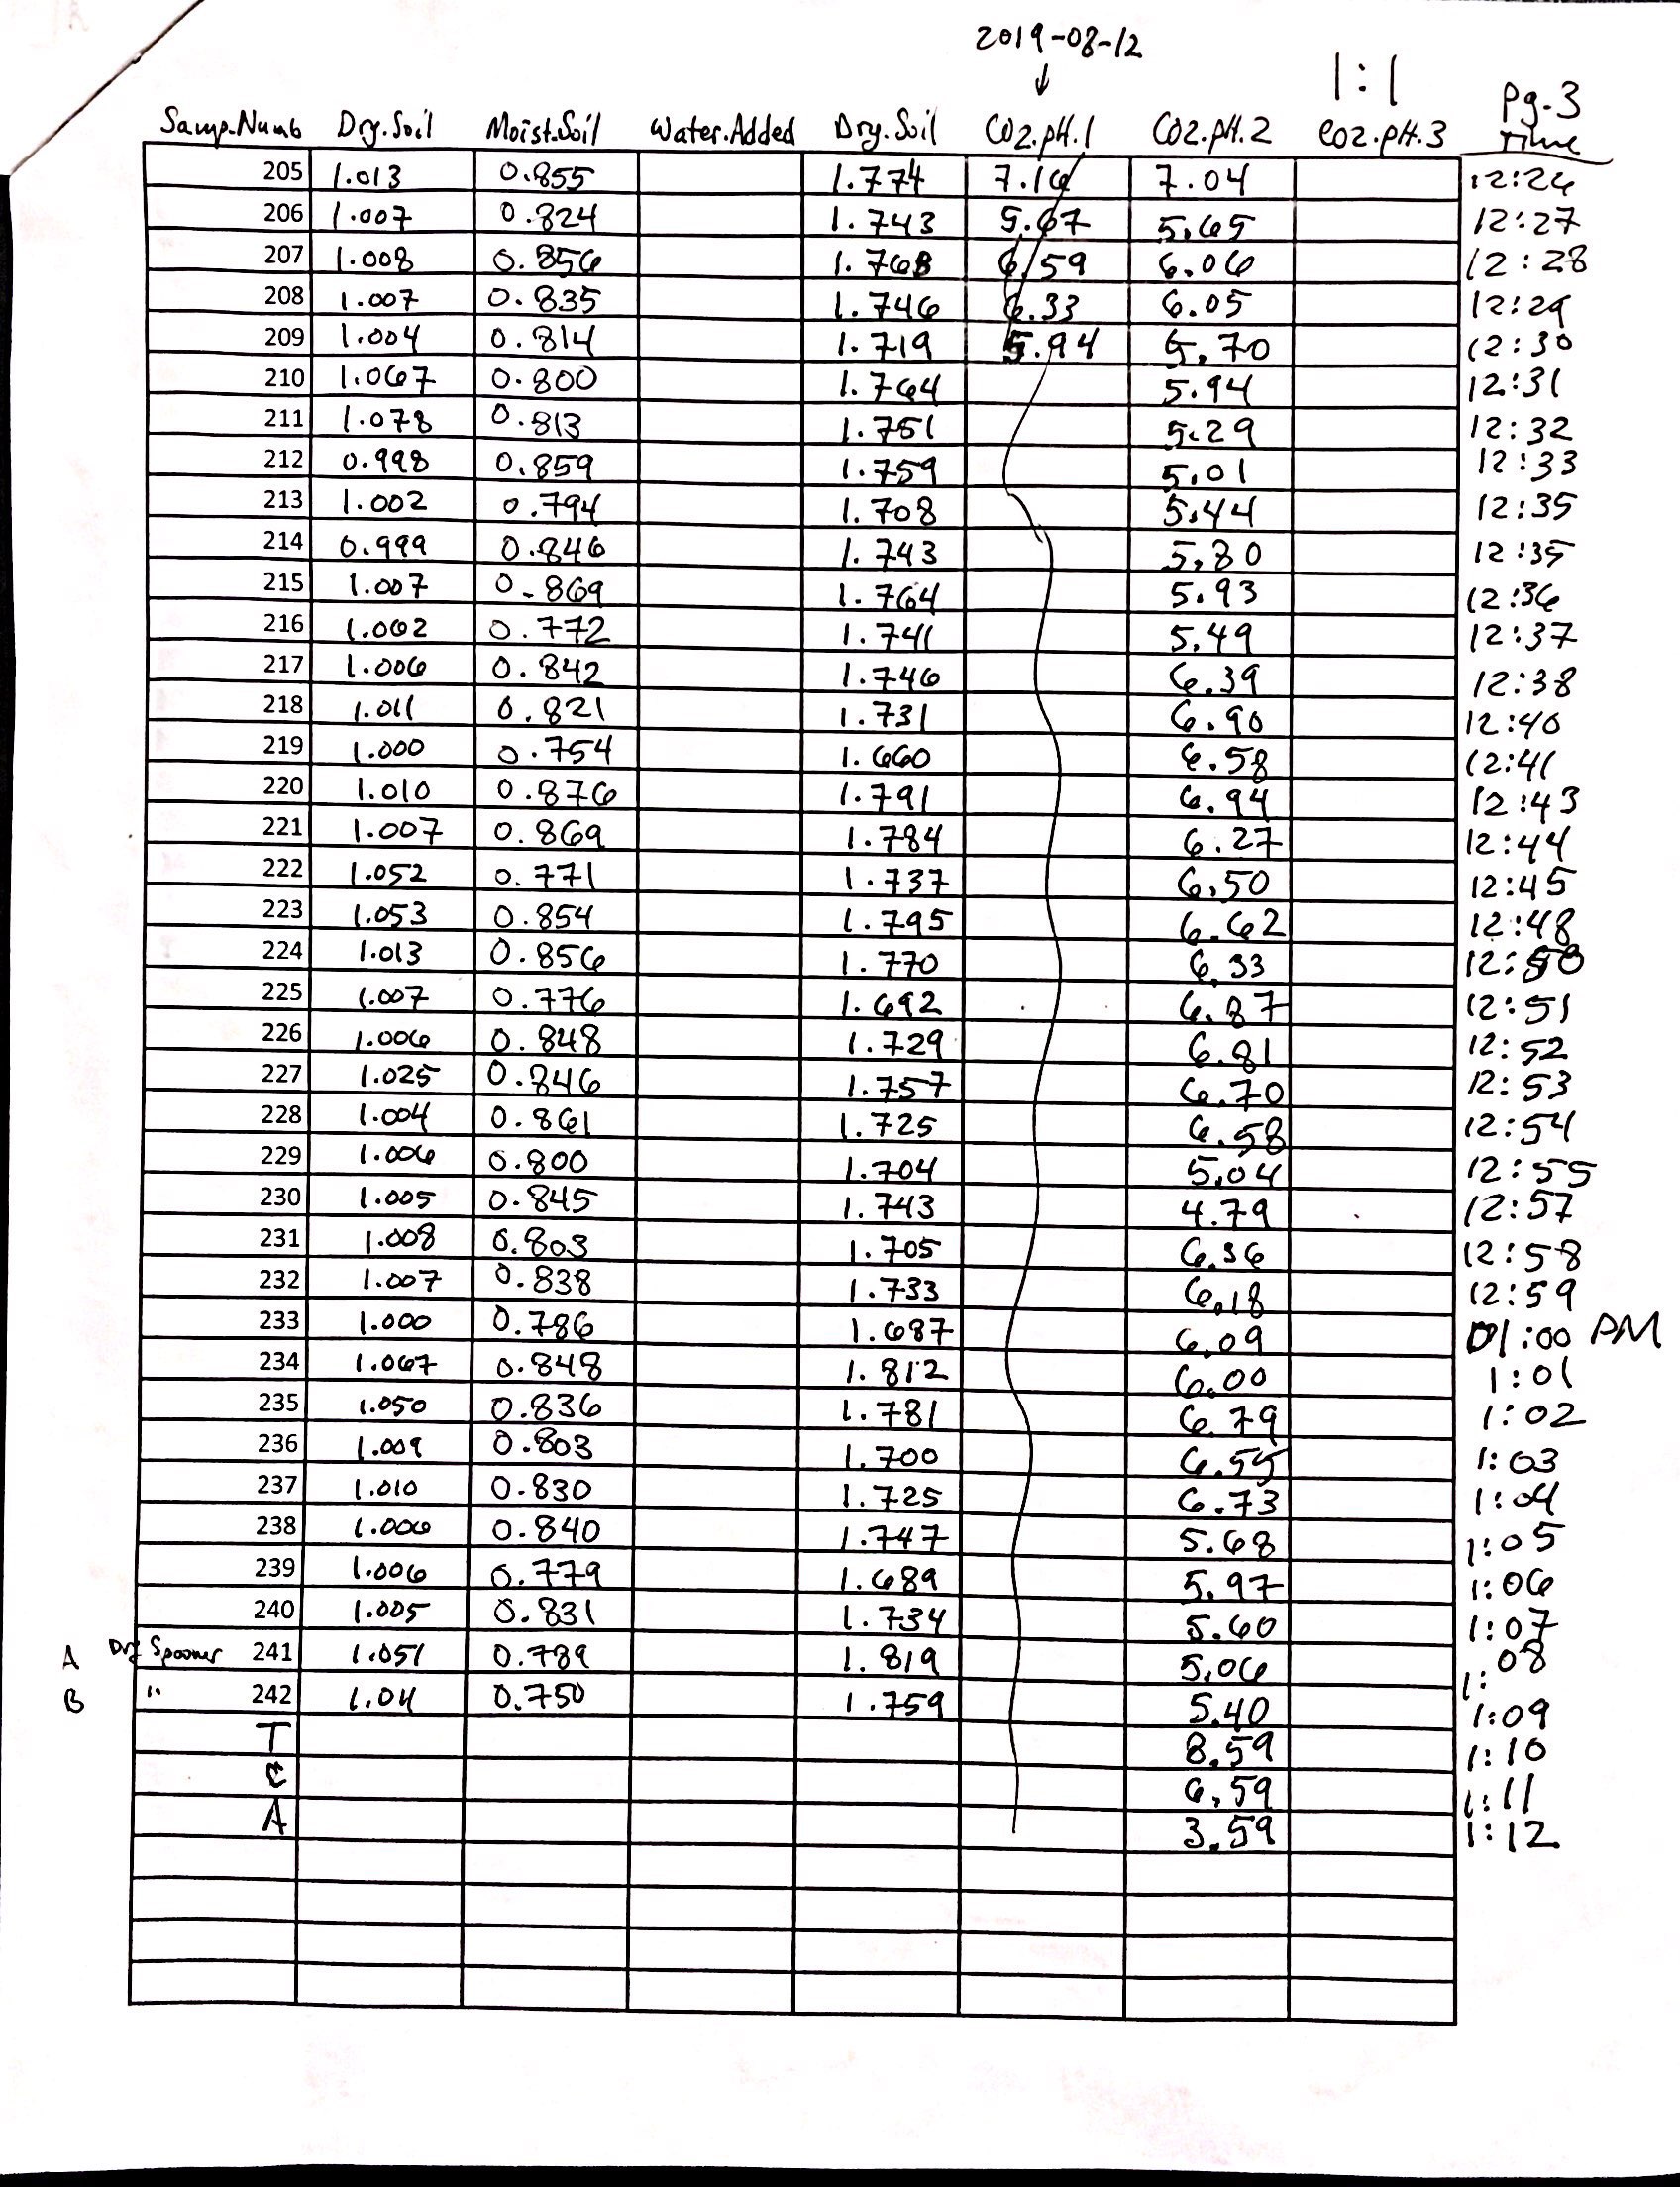 2019-08-12
↓
1:1
Pg.3
Samp.Numb Dry.Soil Moist.Soil Water.Added Dry.Soil CO2.pH.1 CO2.pH.2 CO2.pH.3 Time
205 1.013 0.855 1.774 7.16 7.04 12:26
206 1.007 0.824 1.743 5.67 5.65 12:27
207 1.008 0.856 1.768 6.59 6.06 12:28
208 1.007 0.835 1.746 6.33 6.05 12:29
209 1.004 0.814 1.719 5.94 5.70 12:30
210 1.067 0.800 1.764 5.94 12:31
211 1.078 0.813 1.751 5.29 12:32
212 0.998 0.859 1.759 5.01 12:33
213 1.002 0.794 1.708 5.44 12:35
214 0.999 0.846 1.743 5.80 12:35
215 1.007 0.869 1.764 5.93 12:36
216 1.002 0.772 1.741 5.49 12:37
217 1.006 0.842 1.746 6.39 12:38
218 1.011 0.821 1.731 6.90 12:40
219 1.000 0.754 1.660 6.58 12:41
220 1.010 0.876 1.791 6.94 12:43
221 1.007 0.869 1.784 6.27 12:44
222 1.052 0.771 1.737 6.50 12:45
223 1.053 0.854 1.795 6.62 12:48
224 1.013 0.856 1.770 6.33 12:50
225 1.007 0.776 1.692 6.87 12:51
226 1.006 0.848 1.729 6.81 12:52
227 1.025 0.846 1.757 6.70 12:53
228 1.004 0.861 1.725 6.58 12:54
229 1.006 0.800 1.704 5.04 12:55
230 1.005 0.845 1.743 4.79 12:57
231 1.008 0.803 1.705 6.36 12:58
232 1.007 0.838 1.733 6.18 12:59
233 1.000 0.786 1.687 6.09 01:00 PM
234 1.067 0.848 1.812 6.00 1:01
235 1.050 0.836 1.781 6.79 1:02
236 1.009 0.803 1.700 6.55 1:03
237 1.010 0.830 1.725 6.73 1:04
238 1.006 0.840 1.747 5.68 1:05
239 1.006 0.779 1.689 5.97 1:06
240 1.005 0.831 1.734 5.60 1:07
A Dry Spooner 241 1.051 0.789 1.819 5.06 1:08
B " 242 1.04 0.750 1.759 5.40 1:09
T 8.59 1:10
C 6.59 1:11
A 3.59 1:12